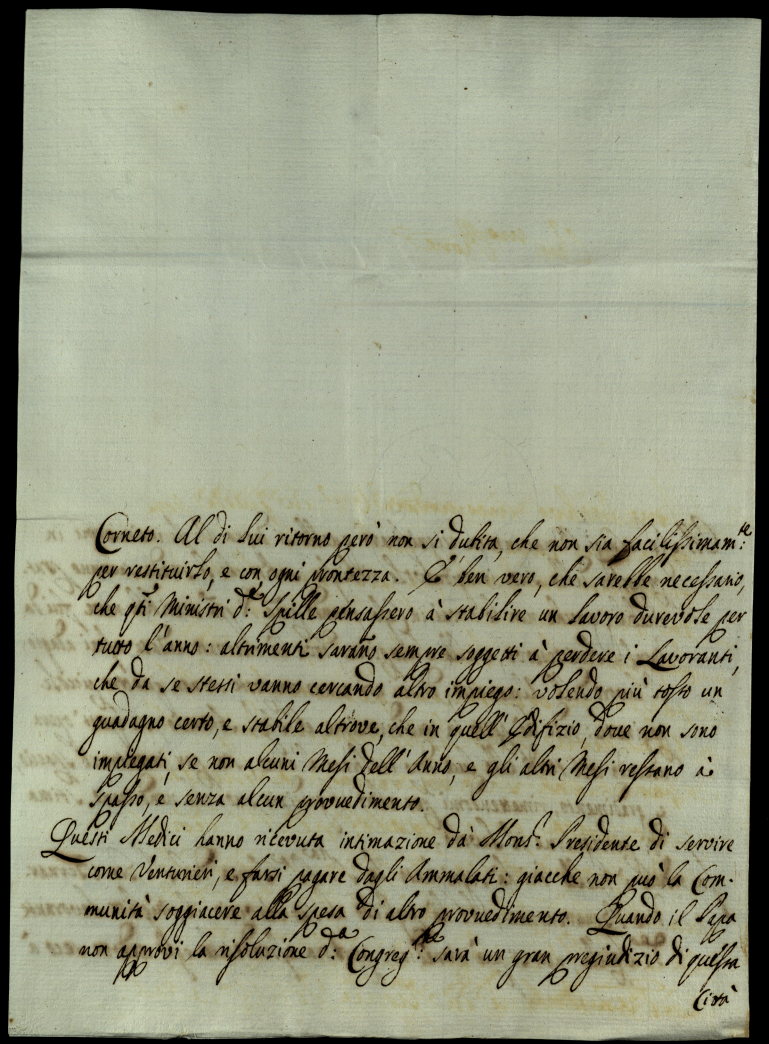 Corneto. Al di lui ritorno però non si dubita, che non sia facilissimam:te
per restituirlo, e con ogni prontezza. E' ben vero, che sarebbe necessario,
che q:ti Ministri d:a Spille pensassero à stabilire un lavoro durevole per
tutto l'anno: altrimenti saranno sempre soggetti à perdere i Lavoranti,
che da se stessi vanno cercando altro impiego: volendo più tosto un
guadagno certo, e stabile altrove, che in quell'Edifizio, dove non sono
impiegati, se non alcuni Mesi dell'Anno, e gli altri Mesi restano à
spasso, e senza alcun provvedimento.
Questi Medici hanno ricevuta intimazione dà Mons:r Presidente di servire
come Venturieri, e farsi pagare dagli Ammalati: giacche non può la Com-
munità soggiacere alla spesa di altro provvedimento. Quando il Papa
non approvi la risoluzione d:a Congreg:ne sarà un gran pregiudizio di questa
Città